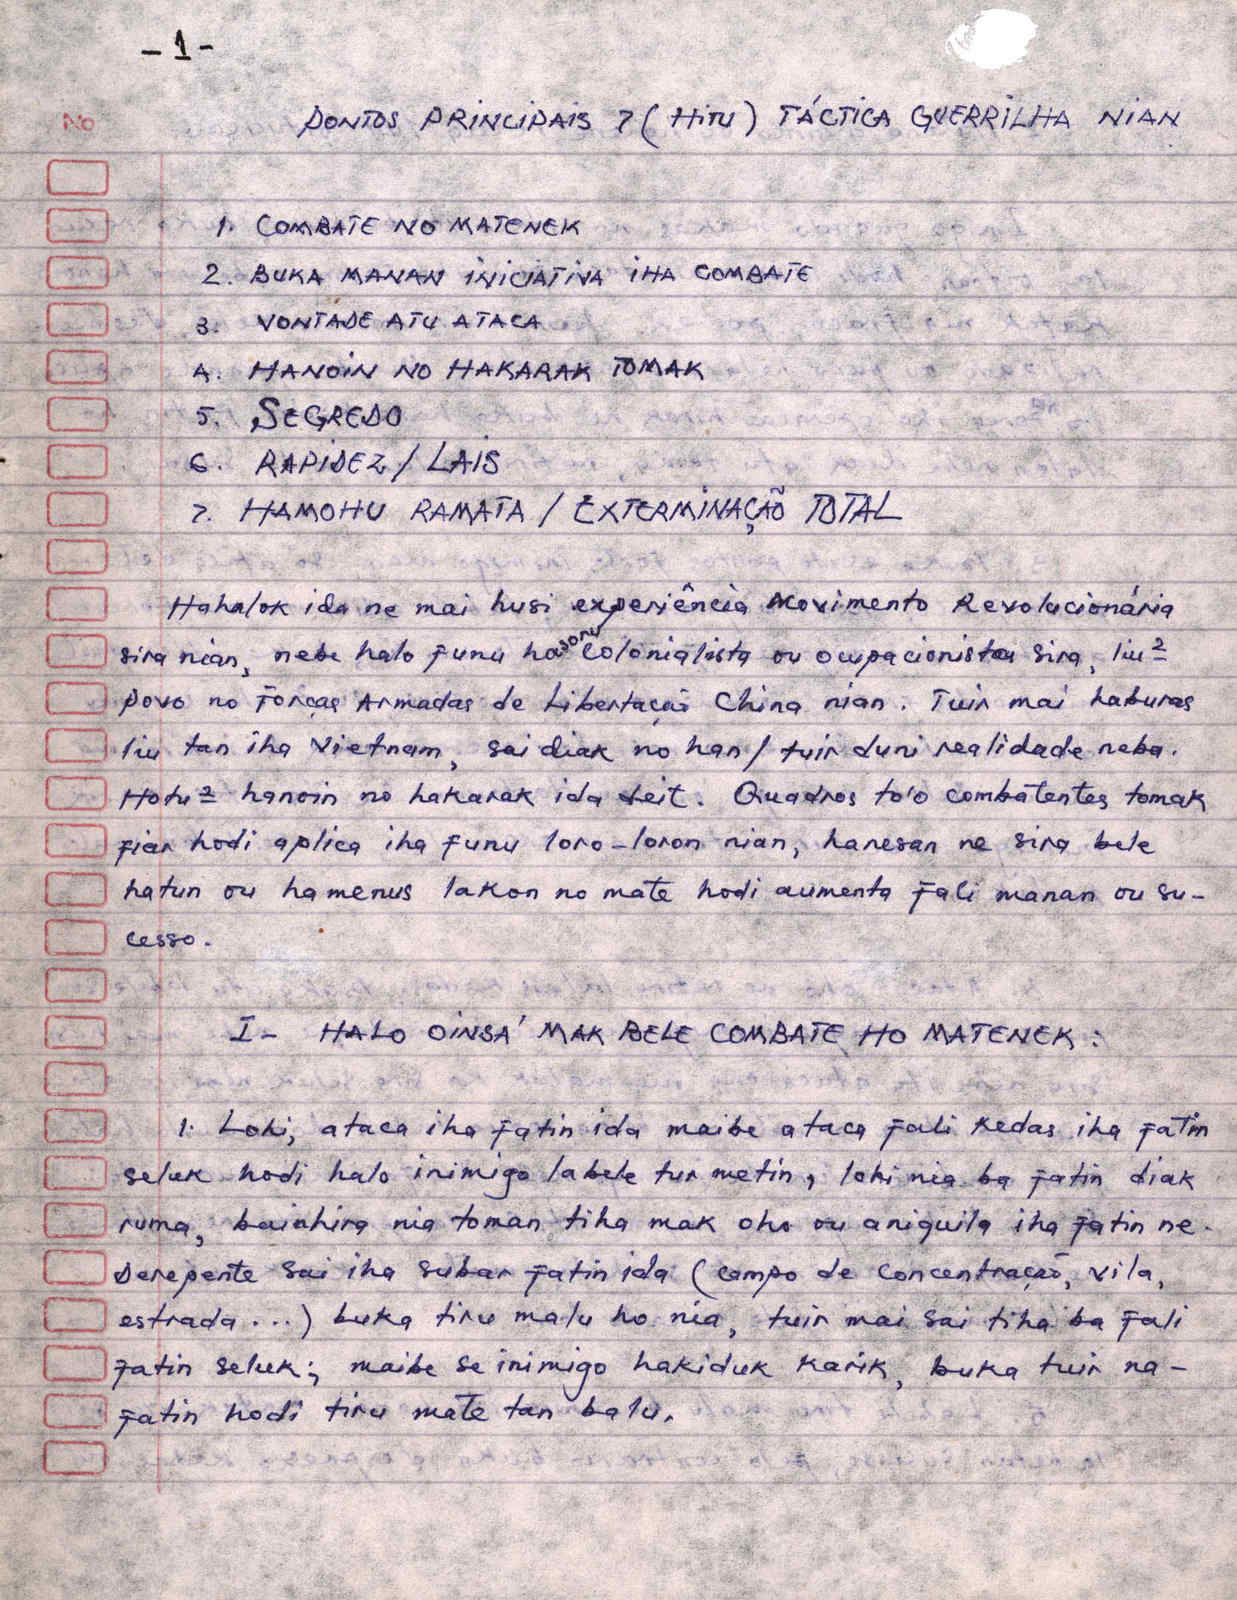 - 1 -
PONTOS PRINCIPAIS 7 (HITU) TÁCTICA GUERRILHA NIAN
No
1. COMBATE NO MATENEK
2. BUKA MANAN INICIATIVA IHA COMBATE
3. VONTADE ATU ATACA
4. HANOIN NO HAKARAK TOMAK
5. SEGREDO
6. RAPIDEZ / LAIS
7. HAMOHU RAMATA / EXTERMINAÇÃO TOTAL
Hahalok ida ne mai husi experiência Movimento Revolucionária
sira nian, nebe halo funu hasoru colonialista ou ocupacionista sira, liu²
Povo no Forças Armadas de Libertação China nian. Tuir mai haburas
liu tan iha Vietnam, sai diak no han / tuir duni realidade neba.
Hotu² hanoin no hakarak ida deit. Quadros to'o combatentes tomak
fiar hodi aplica iha funu loro-loron nian, hanesan ne sira bele
hatun ou hamenus lakon no mate hodi aumenta fali manan ou su-
cesso.
I - HALO OINSÁ MAK BELE COMBATE HO MATENEK :
1. Lohi, ataca iha fatin ida maibe ataca fali kedas iha fatin
seluk hodi halo inimigo labele tur metin, lohi nia ba fatin diak
ruma, bainhira nia toman tiha mak oho ou aniquila iha fatin ne.
Derepente sai iha subar fatin ida (campo de concentração, vila,
estrada ...) buka tiru malu ho nia, tuir mai sai tiha ba fali
fatin seluk; maibe se inimigo hakiduk karik, buka tuir na-
fatin hodi tiru mate tan balu.